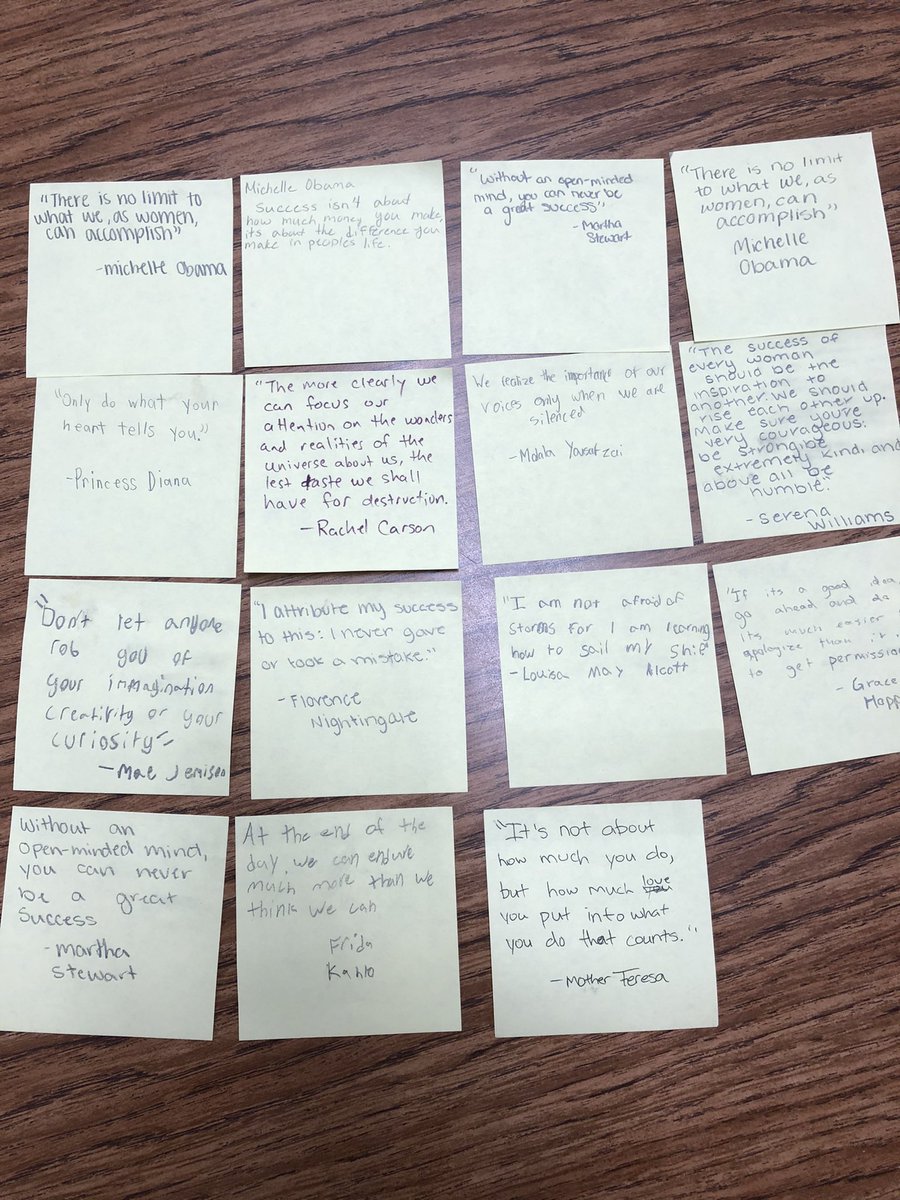 "There is no limit to
what we, as women,
can accomplish"
-michelle Obama
Michelle Obama
Success isn't about
how much money you make,
its about the difference you
make in peoples life.
"Without an open-minded
mind, you can never be
a great success"
-Martha
Stewart
"There is no limit
to what we, as
women, can
accomplish"
Michelle
Obama
"Only do what your
heart tells you."
-Princess Diana
"The more clearly we
can focus our
attention on the wonders
and realities of the
universe about us, the
lest taste we shall
have for destruction.
-Rachel Carson
We realize the importance of our
voices only when we are
silenced
-Malala Yousafzai
"The success of
every woman
should be the
inspiration to
another. We should
rise each other up.
make sure you're
very courageous:
be strong, be
extremely kind, and
above all be
humble."
-Serena
Williams
"Don't let anyone
rob you of
your immagination
creativity or your
curiosity"
-Mae Jemison
"I attribute my success
to this: I never gave
or took a mistake."
-Florence
Nightingale
"I am not afraid of
storms for I am learning
how to sail my ship"
-Louisa May Alcott
"If its a good idea,
go ahead and do
its much easier
apologize than it
to get permission
-Grace
Hopp
Without an
open-minded mind,
you can never
be a great
Success
-martha
Stewart
At the end of the
day, we can endure
much more than we
think we can
Frida
Kahlo
"It's not about
how much you do,
but how much love
you put into what
you do that counts."
-Mother Teresa